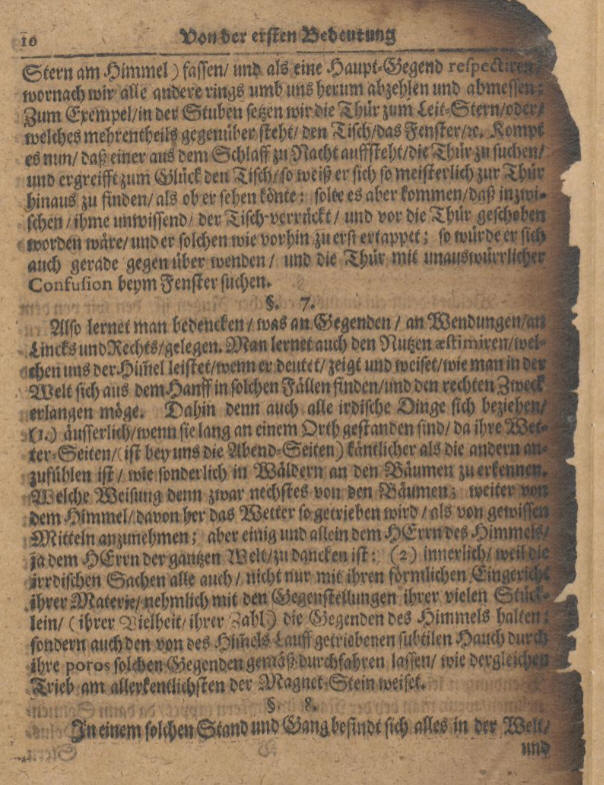 10 Von der ersten Bedeutung
Stern am Himmel) fassen/ und als eine Haupt-Gegend respectiren/
wornach wir alle andere rings umb uns herum abzehlen und abmessen:
Zum Exempel/in der Stuben setzen wir die Thür zum Leit-Stern/oder/
welches mehrentheils gegenüber steht/ den Tisch/das Fenster/ꝛc. Kompt
es nun/ daß einer aus dem Schlaff zu Nacht auffsteht/die Thür zu suchen/
und ergreifft zum Glück den Tisch/so weiß er sich so meisterlich zur Thür
hinaus zu finden/ als ob er sehen könte: solte es aber kommen/daß inzwi-
schen/ ihme unwissend/ der Tisch verrückt/ und vor die Thür geschoben
worden wäre/ und er solchen wie vorhin zu erst ertappet; so würde er sich
auch gerade gegen über wenden/ und die Thür mit unauswürrlicher
Confusion beym Fenster suchen.
§. 7.
Also lernet man bedencken/ was an Gegenden/ an Wendungen/an
Lincks und Rechts/gelegen. Man lernet auch den Nutzen æstimiren/wel-
chen uns der Him̃el leistet/wenn er deutet/ zeigt und weiset/wie man in der
Welt sich aus dem Hanff in solchen Fällen finden/und den rechten Zweck
erlangen möge. Dahin denn auch alle irdische Dinge sich beziehen/
(1.) äusserlich/wenn sie lang an einem Orth gestanden sind/ da ihre Wet-
ter-Seiten/(ist bey uns die Abend-Seiten) käntlicher als die andern an-
zufühlen ist/ wie sonderlich in Wäldern an den Bäumen zu erkennen.
Welche Weisung denn zwar nechstes von den Bäumen; weiter von
dem Himmel/davon her das Wetter so getrieben wird/ als von gewissen
Mitteln anzunehmen; aber einig und allein dem HErrn des Himmels/
ja dem HErrn der gantzen Welt/zu dancken ist: (2) innerlich/ weil die
irrdischen Sachen alle auch/ nicht nur mit ihren förmlichen Eingericht
ihrer Materie/nehmlich mit den Gegenstellungen ihrer vielen Stück-
lein/ (ihrer Vielheit/ ihrer Zahl) die Gegenden des Himmels halten;
sondern auch den von des Him̃els Lauff getriebenen subtilen Hauch durch
ihre poros solchen Gegenden gemäß durchfahren lassen/ wie dergleichen
Trieb am allerkentlichsten der Magnet-Stein weiset.
§. 8.
In einem solchen Stand und Gang befindt sich alles in der Welt/
und